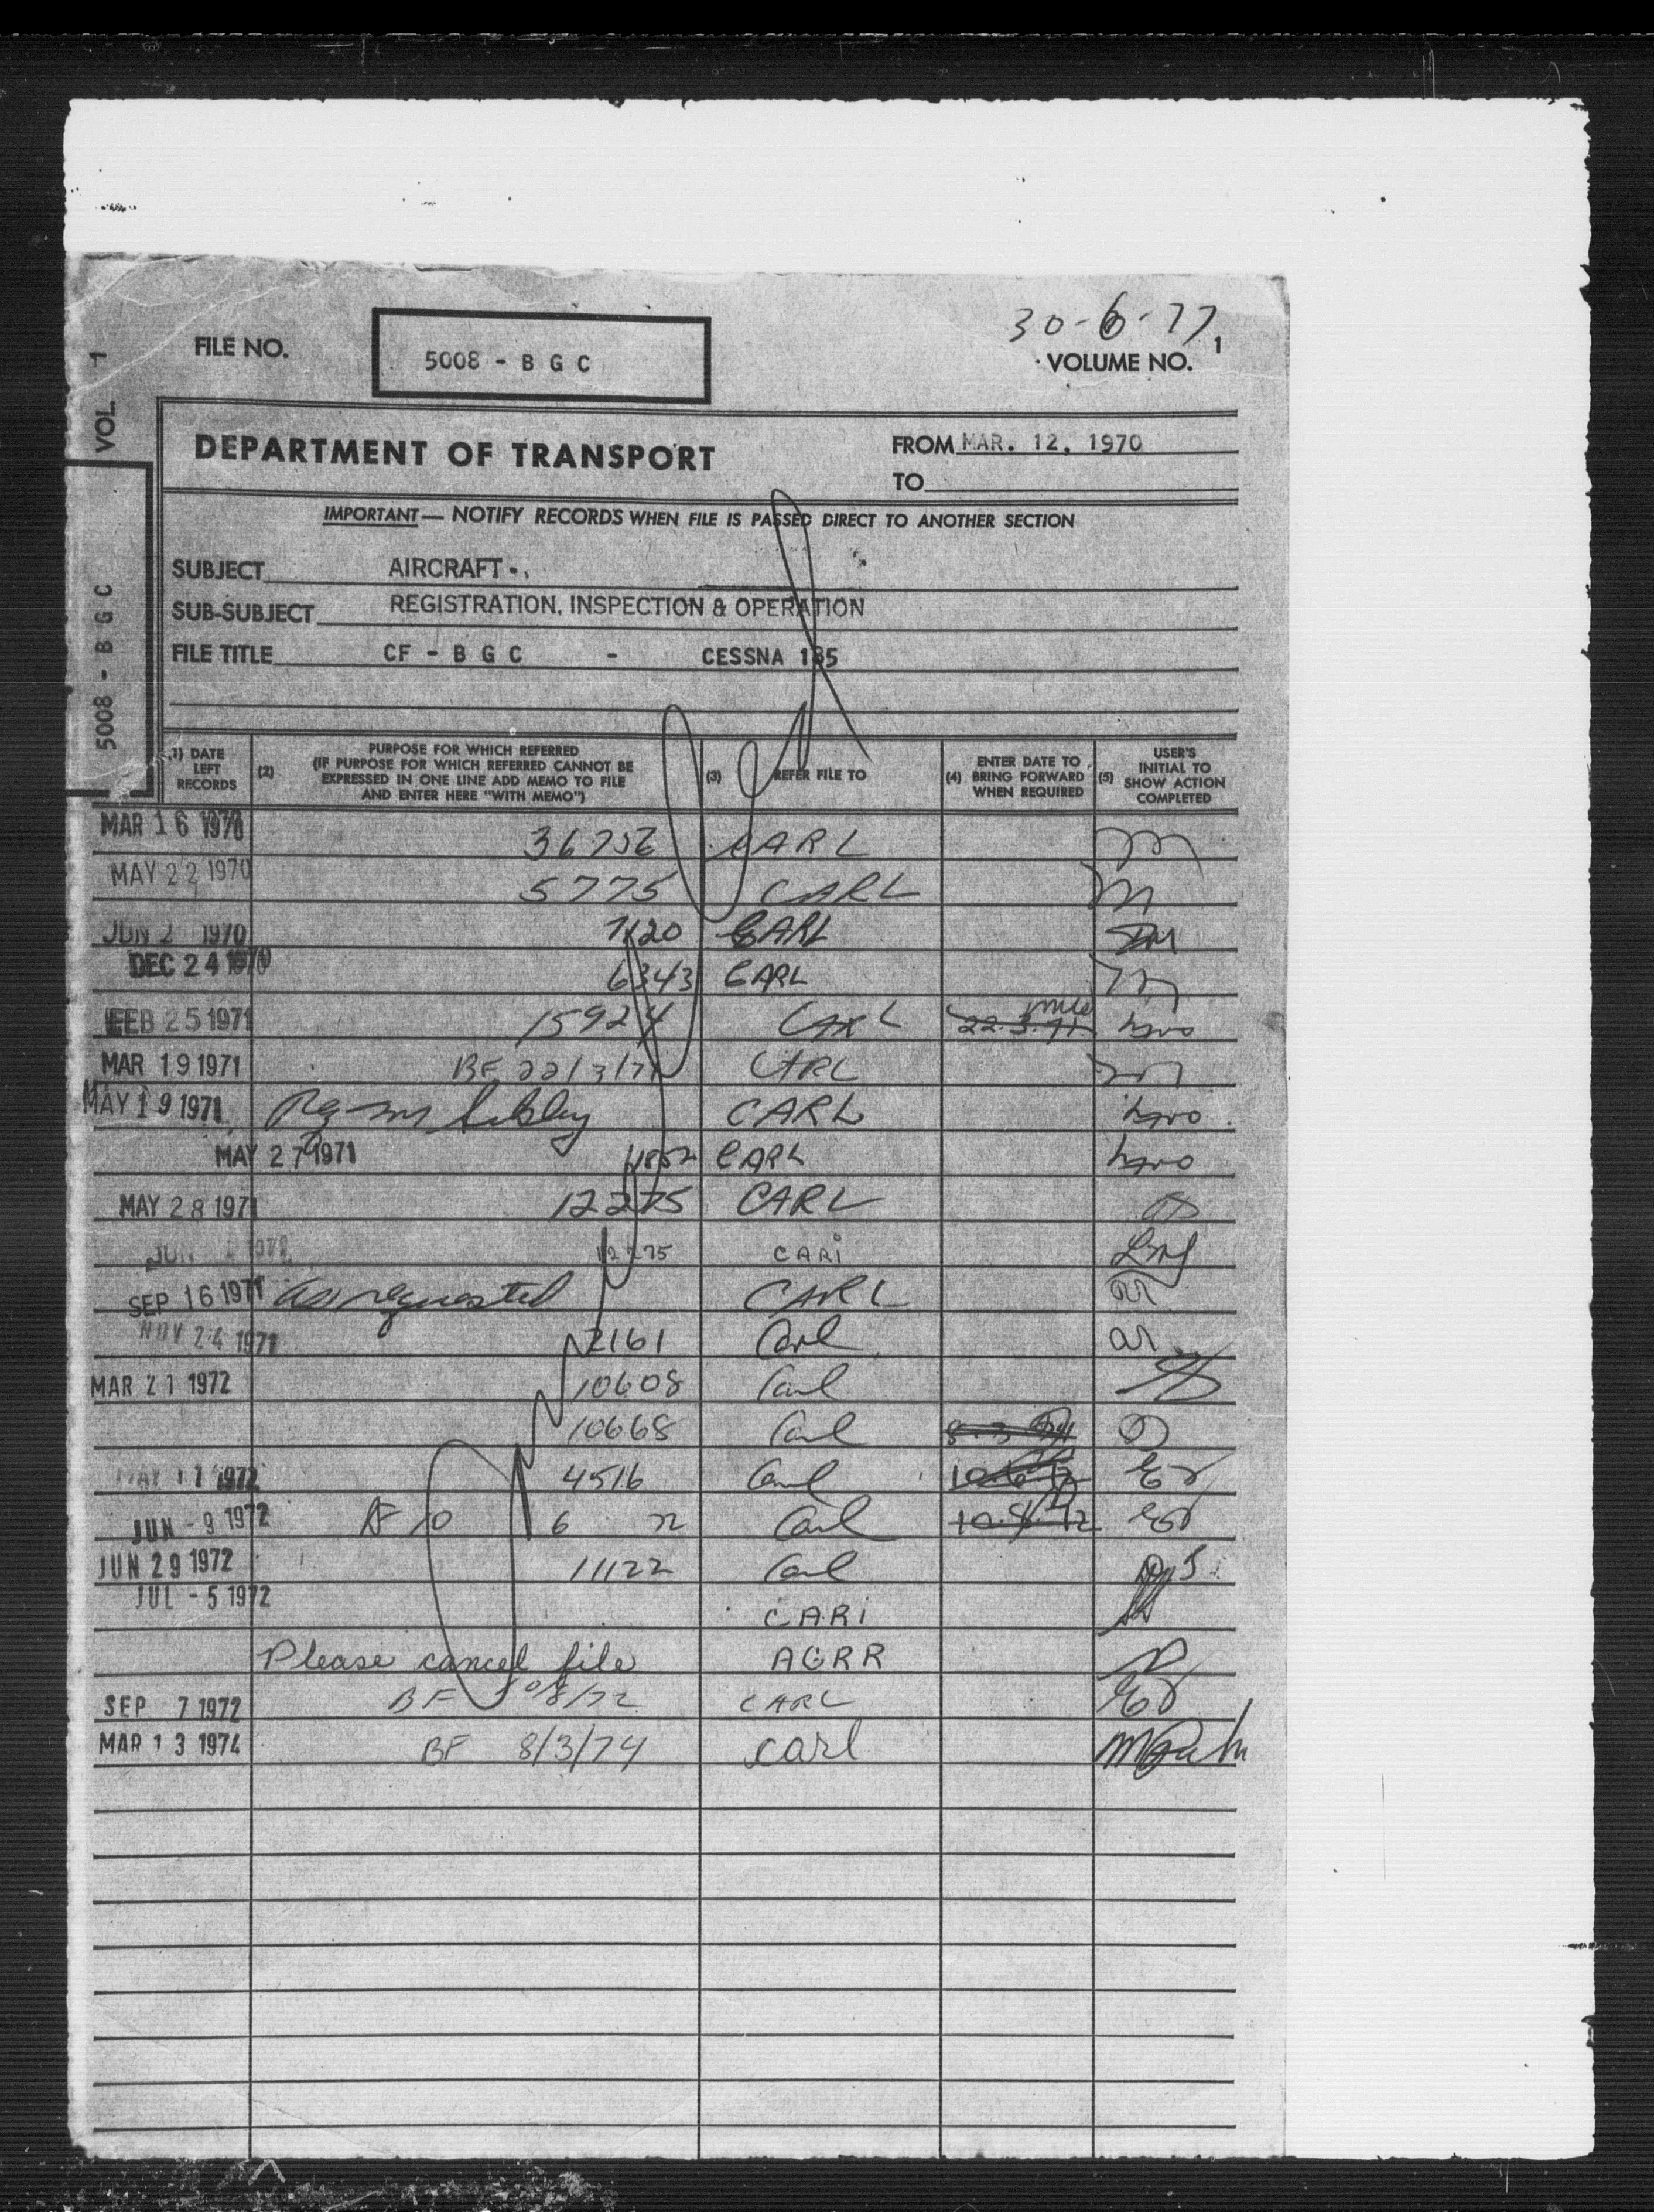 30-6-77
FILE NO. 5008 - B G C VOLUME NO. 1
VOL. 1
5008 - B G C
DEPARTMENT OF TRANSPORT
FROM MAR. 12, 1970
TO
IMPORTANT — NOTIFY RECORDS WHEN FILE IS PASSED DIRECT TO ANOTHER SECTION
SUBJECT AIRCRAFT -
SUB-SUBJECT REGISTRATION, INSPECTION & OPERATION
FILE TITLE CF - B G C - CESSNA 185
(1) DATE LEFT RECORDS
(2) PURPOSE FOR WHICH REFERRED (IF PURPOSE FOR WHICH REFERRED CANNOT BE EXPRESSED IN ONE LINE ADD MEMO TO FILE AND ENTER HERE "WITH MEMO")
(3) REFER FILE TO
(4) ENTER DATE TO BRING FORWARD WHEN REQUIRED
(5) USER'S INITIAL TO SHOW ACTION COMPLETED
MAR 16 1970 36756 CARL
MAY 22 1970 5775 CARL
JUN 2 1970 CARL
DEC 24 1970 6343 CARL
FEB 25 1971 15924 CARL 22.3.71
MAR 19 1971 BF 22/3/71 CARL
MAY 19 1971 CARL
MAY 27 1971 CARL
MAY 28 1971 12275 CARL
JUN 12275 CARI
SEP 16 1971 as requested CARL
NOV 24 1971 2161 Carl
MAR 21 1972 10608 Carl
10668 Carl
MAY 17 1972 4516 Carl
JUN - 9 1972 BF 10 6 72 Carl
JUN 29 1972 11122 Carl
JUL - 5 1972 CARI
Please cancel file AGRR
SEP 7 1972 BF 10/8/72 CARL
MAR 13 1974 BF 8/3/74 Carl